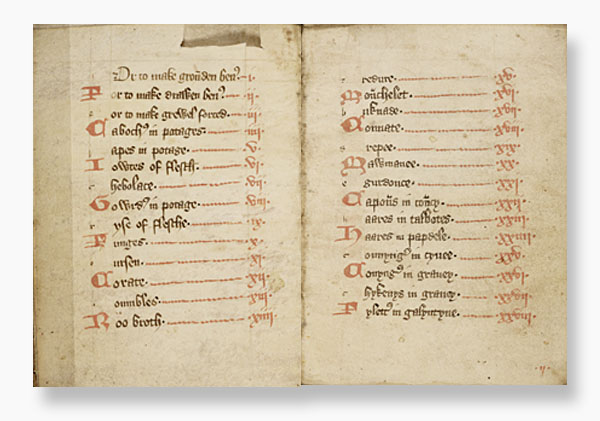 Or to make groūden benꝰ · i ·
For to make drawen benꝰ · ii ·
or to make grewel forced · iii ·
Cabochꝭ in potages · iiii ·
apes in potage · v ·
Iowtes of flessh · vi ·
hebolace · vii ·
Gowrdꝭ in potage · viii ·
ryse of flesshe · ix ·
Funges · x ·
ursen · xi ·
Corate · xii ·
oumbles · xiii ·
Roo broth · xiiii ·
redure · xv ·
Moūchelet · xvi ·
b uknade · xvii ·
Connate · xviii ·
drepee · xix ·
Mawmanee · xx ·
e gurdouce · xxi ·
Capoūs in coūcy · xxii ·
haares in talbotes · xxiii ·
Haares in papdele · xxiiii ·
connyngꝭ in cynee · xxv ·
Conyngꝭ in gravey · xxvi ·
chykenys in gravey · xxvii ·
Fylettꝭ in galyntyne · xxviii ·